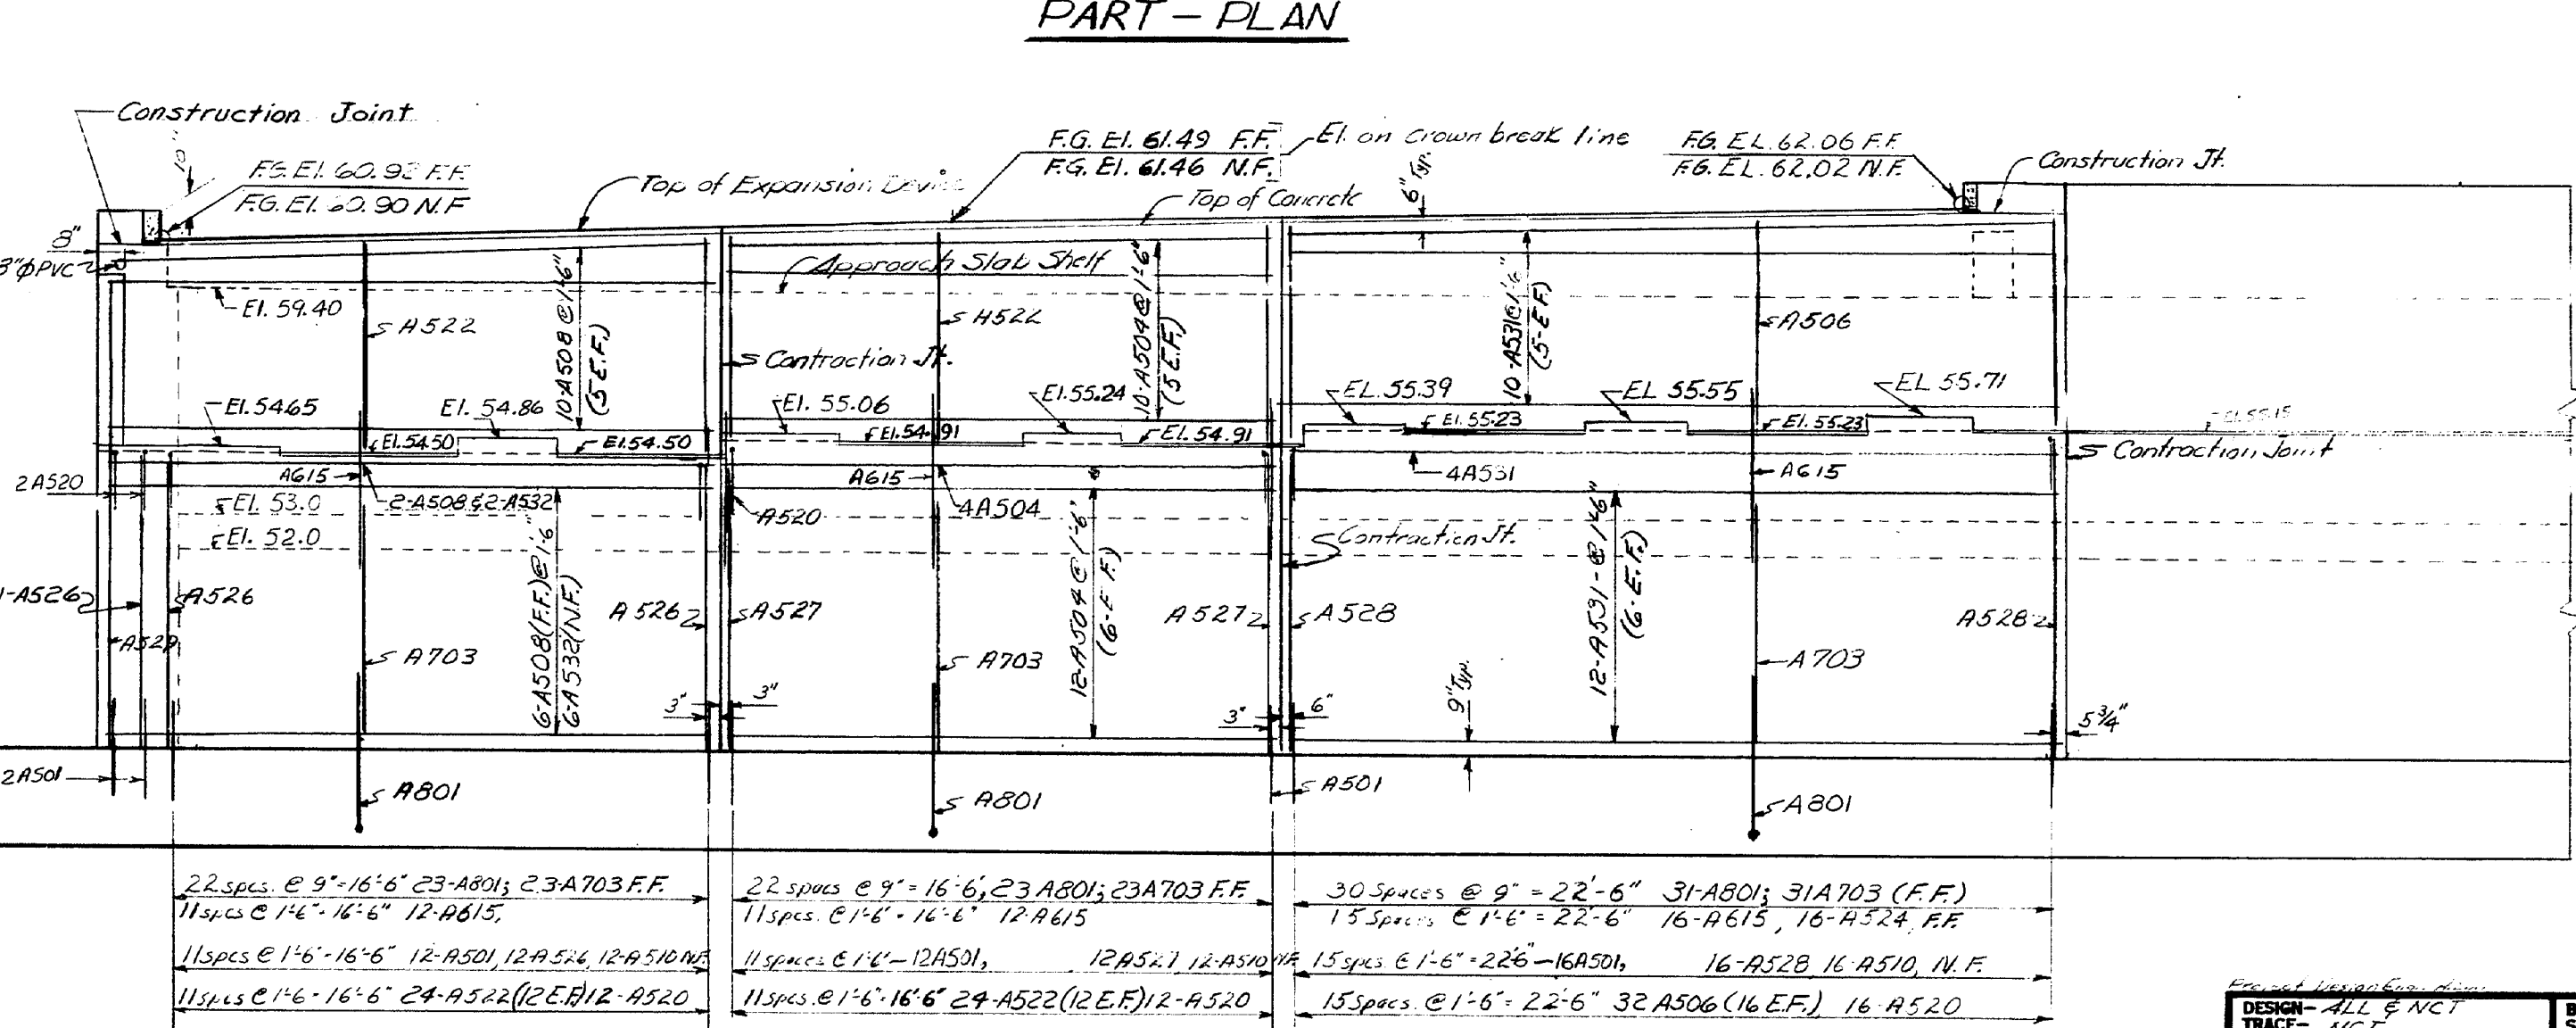 PART - PLAN
Construction Joint
10"
F.G. El. 60.92 F.F.
F.G. El. 60.90 N.F
Top of Expansion Device
F.G. El. 61.49 F.F.
F.G. El. 61.46 N.F.
El. on crown break line
Top of Concrete
6" Typ.
F.G. EL. 62.06 F.F.
F.G. EL. 62.02 N.F.
Construction Jt.
8"
3"φ PVC
El. 59.40
A522
10-A508 @ 1'-6"
(5 E.F.)
Contraction Jt.
Approach Slab Shelf
A522
10-A504 @ 1'-6"
(5 E.F.)
10-A531 @ 1'-6"
(5-E.F.)
A506
El. 54.65
El. 54.86
El. 54.50
El. 54.50
El. 55.06
El. 55.24
El. 54.91
El. 54.91
EL. 55.39
El. 55.23
EL 55.55
El. 55.23
EL 55.71
El. 55.15
Contraction Joint
2A520
A615
2-A508 & 2-A532
A615
4A504
4A531
A615
El. 53.0
El. 52.0
A520
Contraction Jt.
1-A526
A526
A529
A703
6-A508 (F.F.) @ 1'-6"
6-A532 (N.F.)
A526
A527
A703
12-A504 @ 1'-6"
(6-E.F.)
A527
A528
12-A531-@ 1'-6"
(6-E.F.)
A703
A528
3"
3"
3"
6"
9" Typ.
5 3/4"
2A501
A801
A801
A501
A801
22 spcs. @ 9"=16'-6" 23-A801; 23-A703 F.F.
11 spcs @ 1'-6"-16'-6" 12-A615,
11 spcs @ 1'-6"-16'-6" 12-A501, 12-A526, 12-A510 N.F.
11 spcs @ 1'-6-16'-6" 24-A522 (12 E.F.) 12-A520
22 spacs @ 9" = 16'-6", 23 A801; 23A703 F.F.
11 spcs. @ 1'-6" - 16'-6" 12-A615
11 spaces @ 1'-6"-12A501, 12A527, 12-A510 N.F.
11 spcs. @ 1'-6"-16'-6" 24-A522 (12 E.F.) 12-A520
30 Spaces @ 9" = 22'-6" 31-A801; 31A703 (F.F.)
15 Spaces @ 1'-6" = 22'-6" 16-A615, 16-A524, F.F.
15 spcs @ 1'-6" = 22'6"-16A501, 16-A528 16-A510, N.F.
15 Spacs. @ 1'-6" = 22'-6" 32 A506 (16 E.F.) 16-A520
DESIGN- ALL & NCT
TRACE- NCT